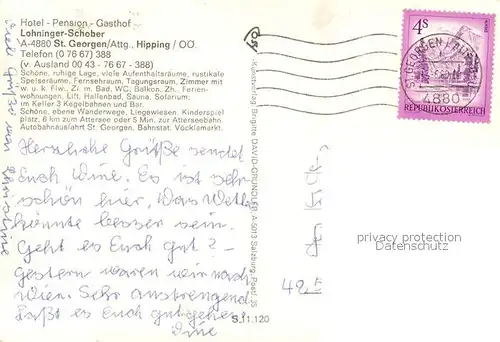 Hotel - Pension - Gasthof
Lohninger-Schober
A-4880 St. Georgen/Attg., Hipping / OÖ.
Telefon (0 76 67) 388
(v. Ausland 00 43 - 76 67 - 388)
Schöne, ruhige Lage, viele Aufenthaltsräume, rustikale
Speiseräume, Fernsehraum, Tagungsraum, Zimmer mit
w. u. k. Fließw., Zi. m. Bad, WC, Balkon, Zh., Ferien-
wohnungen, Lift, Hallenbad, Sauna, Solarium,
im Keller 3 Kegelbahnen und Bar.
Schöne, ebene Wanderwege, Liegewiesen, Kinderspiel
platz, 6 km zum Attersee oder 5 Min. zur Atterseebahn.
Autobahnausfahrt St. Georgen, Bahnstat. Vöcklamarkt.
Herzliche Grüße sendet
Euch Dine. Es ist sehr
schön hier, Das Wetter
könnte besser sein.
Geht es Euch gut?
Gestern waren wir nach
Wien. Sehr anstrengend
Laßt es Euch gut gehen
Dine
S.11.120
Kunstverlag Brigitte DAVID-GRÜNDLER, A-5013 Salzburg, Postf. 35
4S
REPUBLIK ÖSTERREICH
ST. GEORGEN I. ATT
4880
privacy protection
Datenschutz